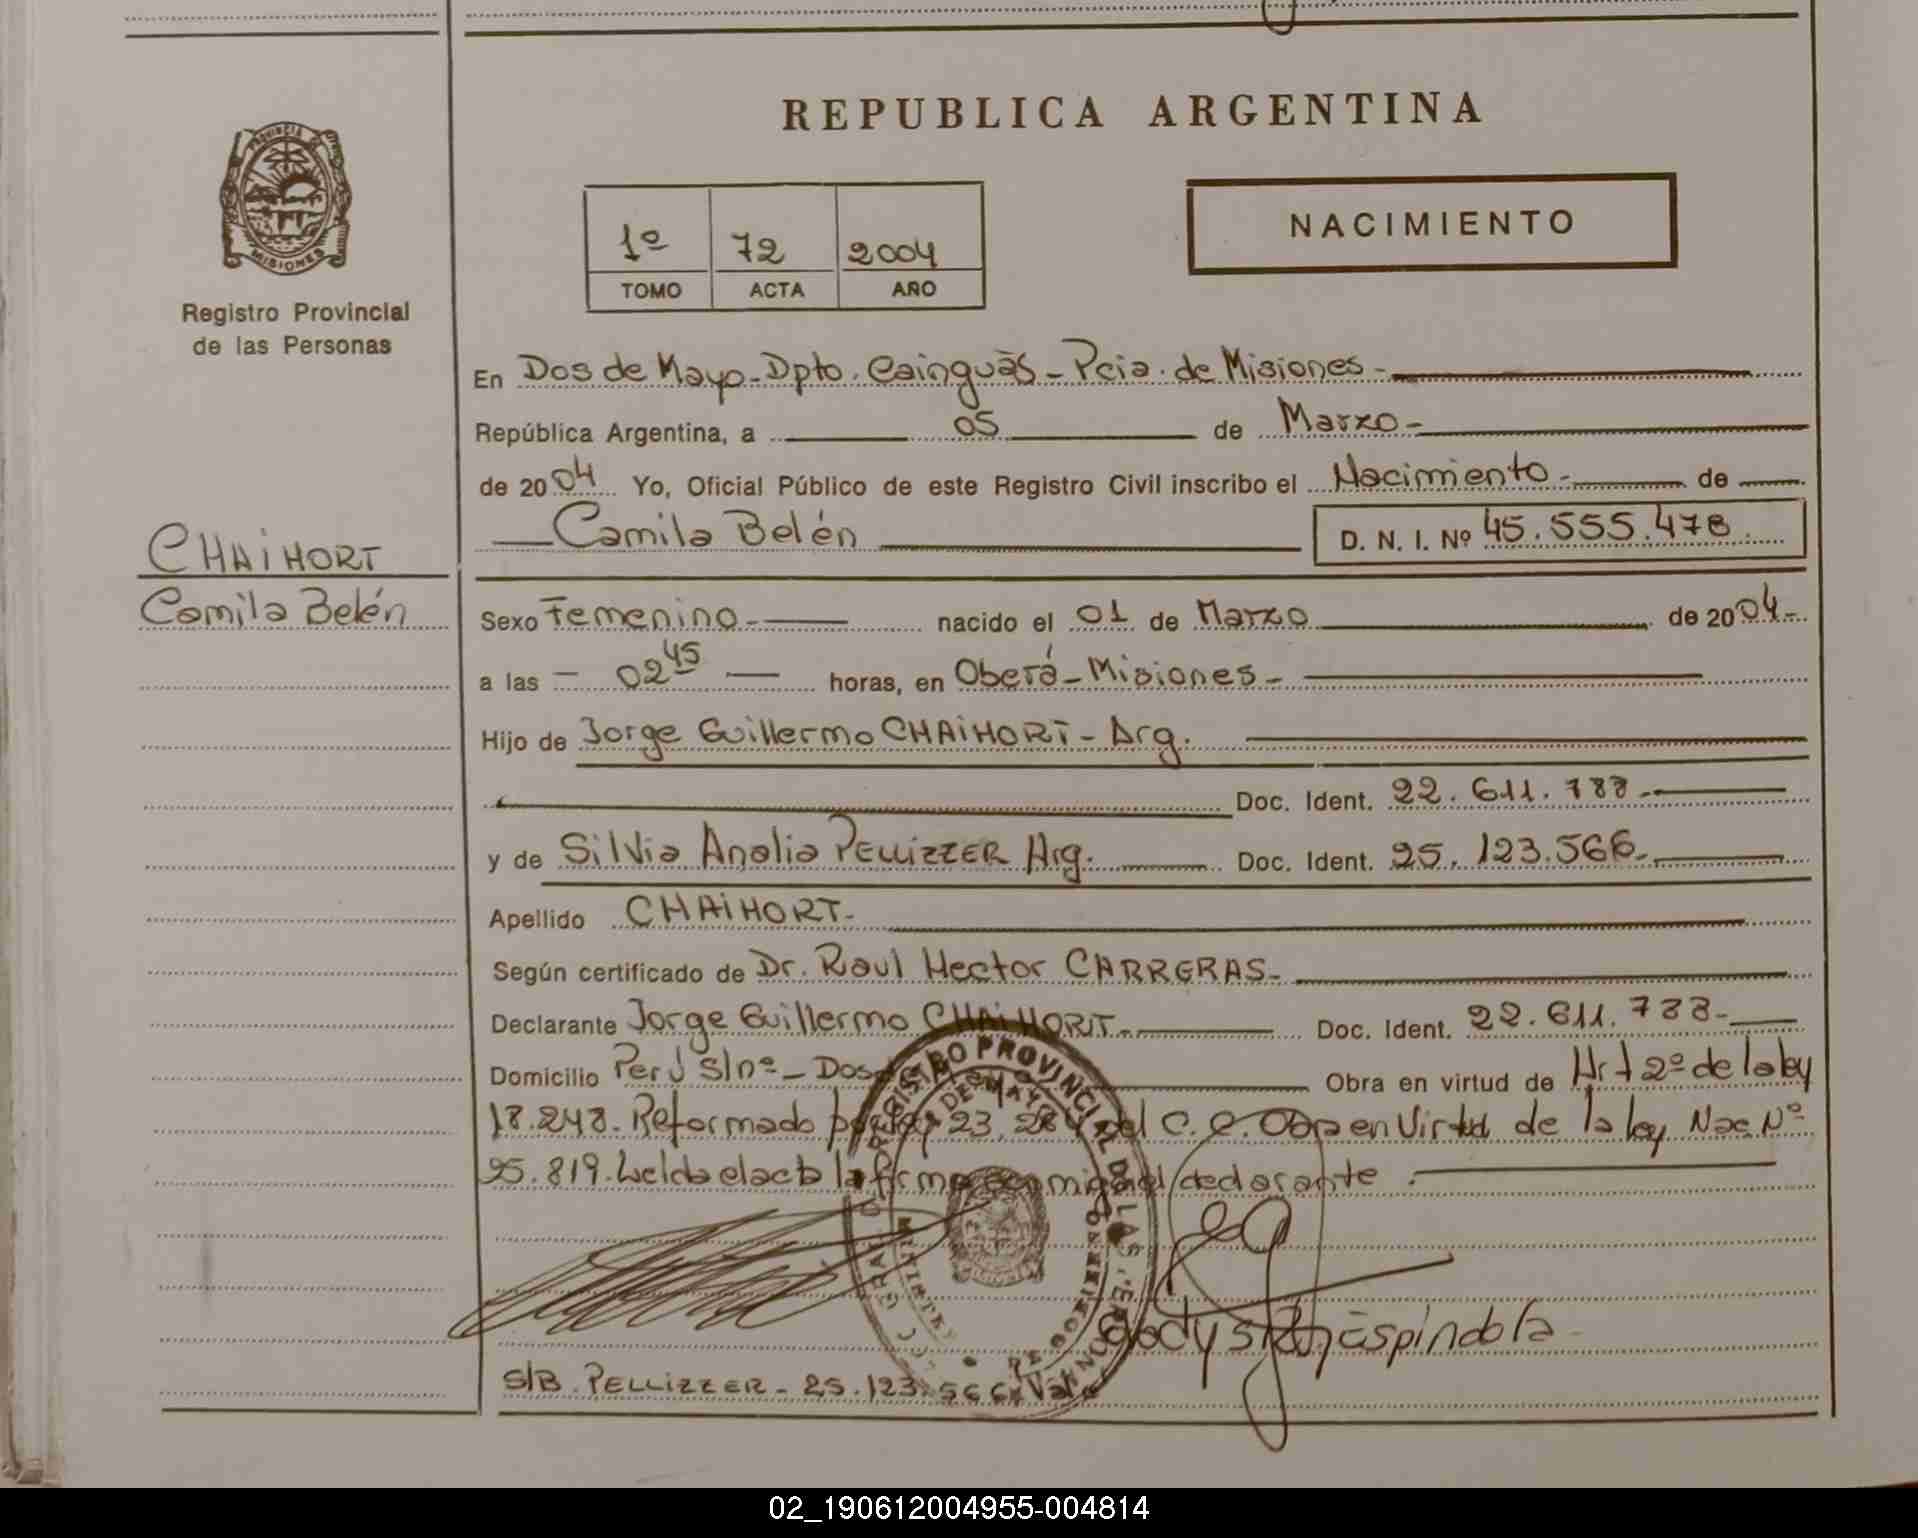 REPUBLICA ARGENTINA
PROVINCIA DE
MISIONES
Registro Provincial
de las Personas
1º 72 2004
TOMO ACTA AÑO
NACIMIENTO
En Dos de Mayo - Dpto. Cainguàs - Pcia. de Misiones -
República Argentina, a 05 de Marzo -
de 2004 Yo, Oficial Público de este Registro Civil inscribo el Nacimiento - de
Camila Belén D. N. I. Nº 45.555.478
CHAiHORT
Camila Belén
Sexo Femenino - nacido el 01 de Marzo de 2004 -
a las - 02 45 - horas, en Oberá - Misiones -
Hijo de Jorge Guillermo CHAiHORT - Arg.
Doc. Ident. 22.611.788 -
y de Silvia Analia PELLIZZER Arg. Doc. Ident. 25.123.566 -
Apellido CHAiHORT -
Según certificado de Dr. Raul Hector CARRERAS -
Declarante Jorge Guillermo CHAiHORT - Doc. Ident. 22.611.788 -
Domicilio Perú S/nº - Dos de Mayo Obra en virtud de Art 2º de la ley
18.248. Reformado por ley 23.264 del C.C. Obra en Virtud de la ley Nac Nº
25.819. Leida el acta la firma conmigo el declarante.
REGISTRO PROVINCIAL DE LAS PERSONAS
Gladys Espindola -
S/B. PELLIZZER - 25.123.566 Vale
02_190612004955-004814